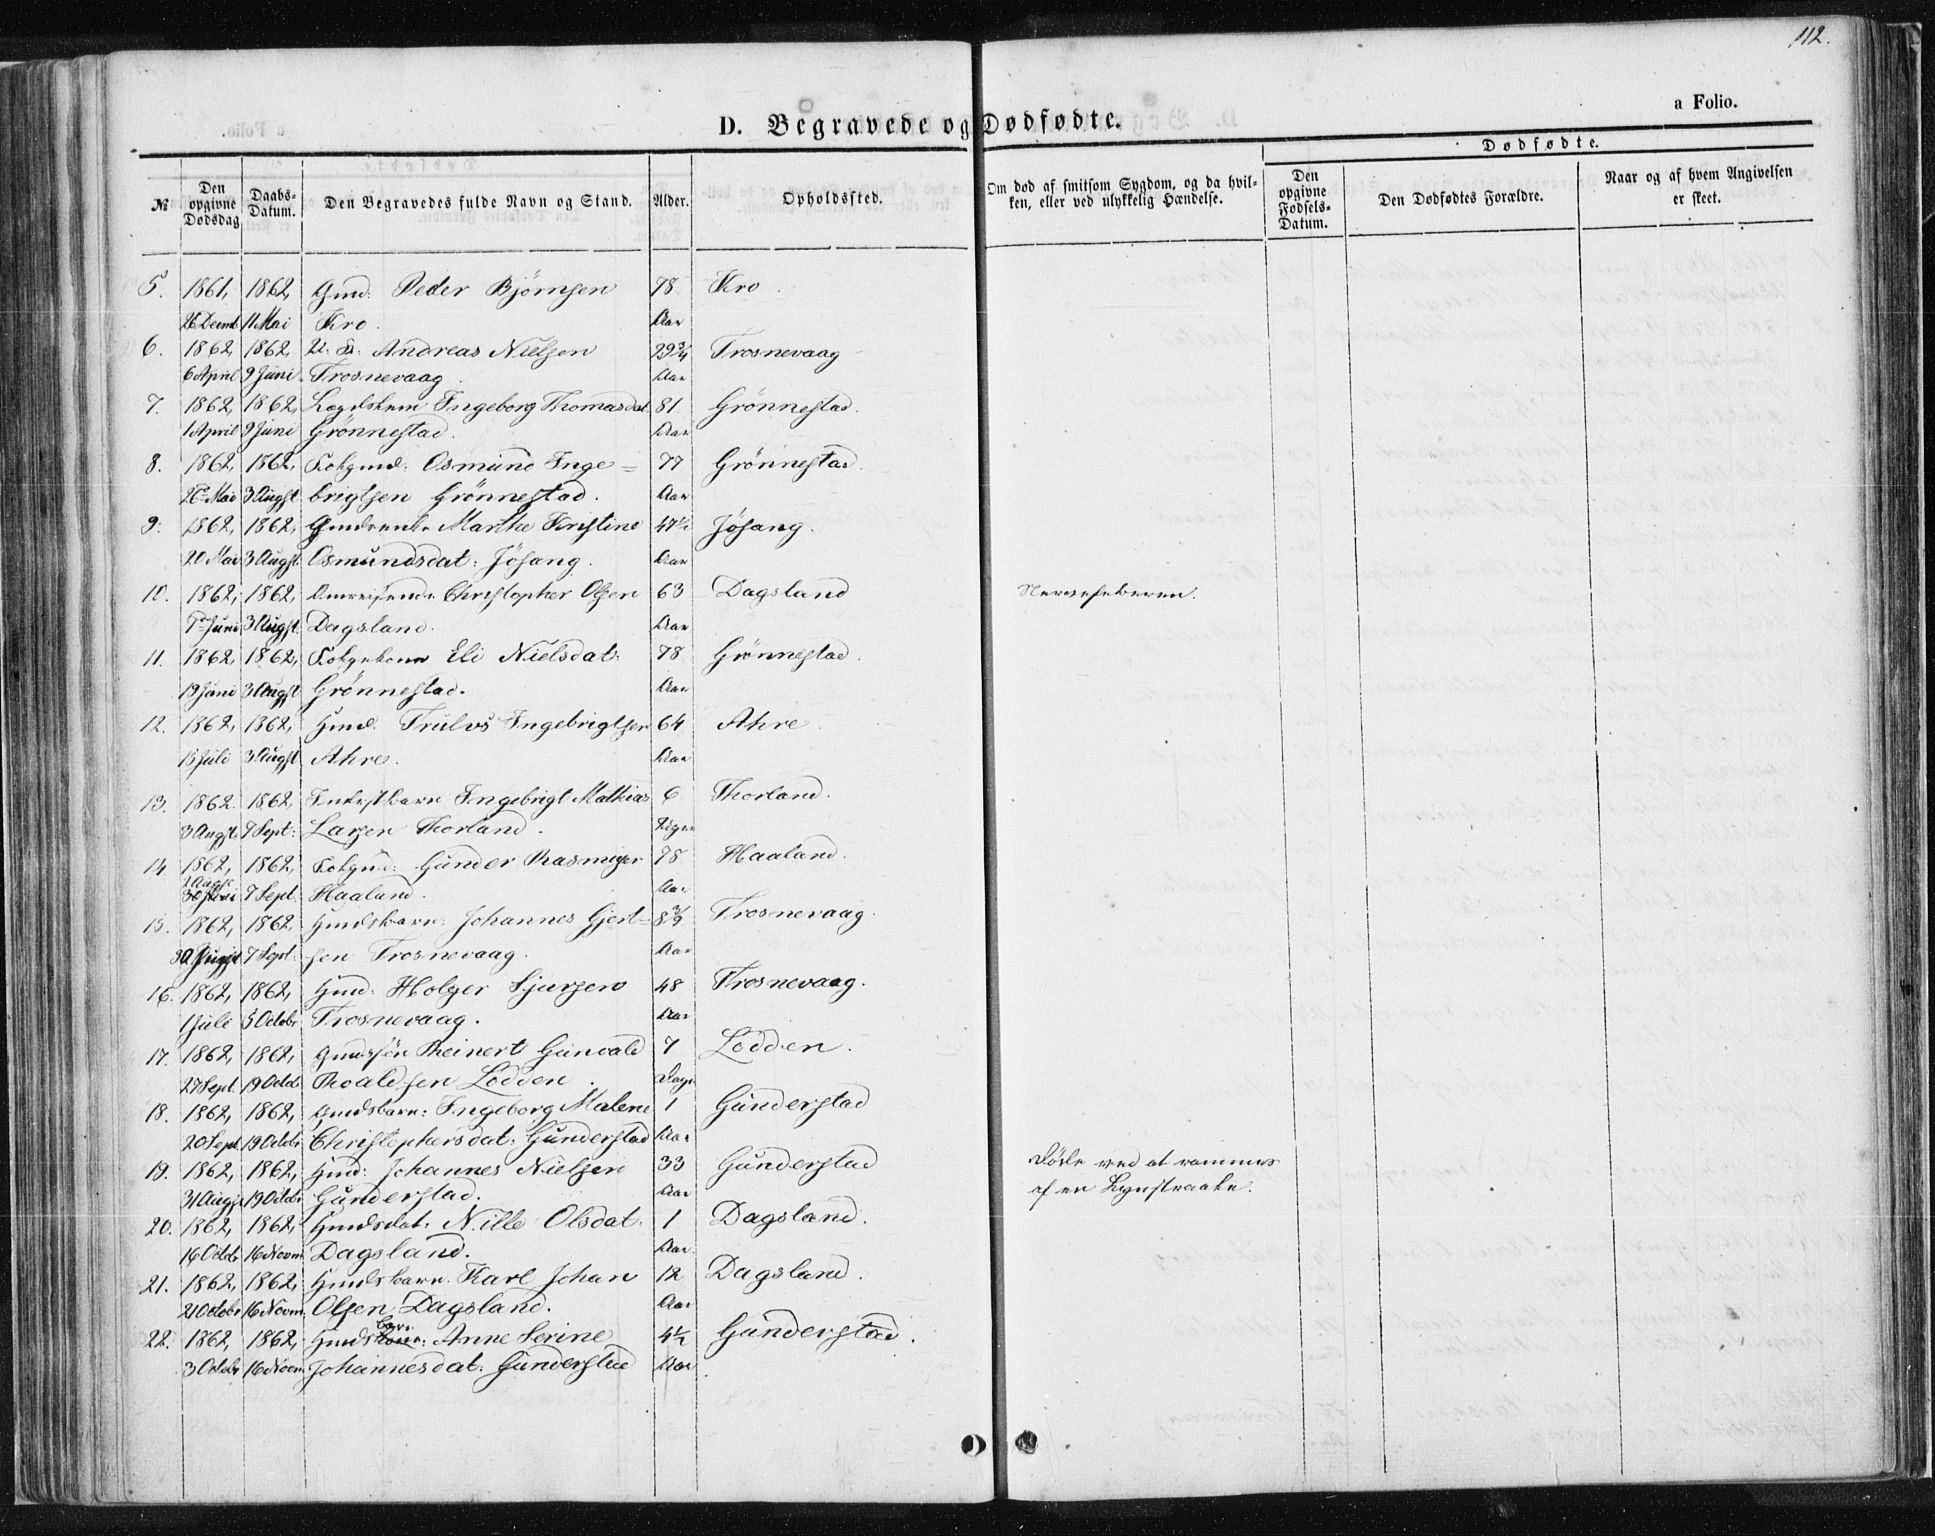 112.
a Folio.
D. Begravede og Dødfødte.
Dødfødte.
№ Den opgivne Dødsdag Daabs-Datum. Den Begravedes fulde Navn og Stand. Alder. Opholdsted. Om død af smitsom Sygdom, og da hvilken, eller ved ulykkelig Hændelse. Den opgivne Fødsels-Datum. Den Dødfødtes Forældre. Naar og af hvem Angivelsen er skeet.
5. 1861, 1862, Gmd: Peder Bjørnsen 78 Kro.
26 Decmb 11 Mai Kro. Aar
6. 1862, 1862, Andreas Nielsen 29¾ Trosnevaag
6 April 9 Juni Trosnevaag Aar
7. 1862, 1862, Ingeborg Thomasdat 81 Grönnestad.
1 April 9 Juni Grönnestad. Aar
8. 1862, 1862, Osmund Inge= 77 Grönnestad.
Mai 3 Augst brigtsen Grönnestad. Aar
9. 1862, 1862, Marthe Kristine 47½ Jösang.
20 Mai 3 Augst Osmundsdat: Jösang. Aar
10. 1862, 1862, Christopher Olsen 63 Dagsland Nervefeberen.
Juni 3 Augst Dagsland. Aar
11. 1862, 1862, Eli Nielsdat: 78 Grönnestad.
19 Juni 3 Augst Grönnestad. Aar
12. 1862, 1862, Hmd. Trulvs Ingebrigtsen 64 Ahre.
15 Juli 3 Augst Ahre. Aar
13. 1862. 1862, Ingebrigt Mathias 6 Thorland.
3 Augst 7 Sept: Larsen Thorland. Uger
14. 1862, 1862, Gunder Rasmusen 78 Haaland.
7 Sept. Haaland. Aar
15. 1862, 1862, Hmdsbarn: Johannes Gjert- Trosnevaag.
7 Sept: sen Trosnevaag. Aar
16. 1862, 1862, Hmd. Holger Sjursen 48 Trosnevaag.
1 Juli 5 Octobr Trosnevaag. Aar
17. 1862, 1862, Gmdssön Reinert Gunvald 7 Lodden.
27 Sept. 19 Octob Roaldsen Lodden. Dage
18. 1862, 1862, Gmdsbarn: Ingeborg Malene 1 Gunderstad
20 Sept. 19 Octobr Christophersdat: Gunderstad Aar
19. 1862, 1862, Hmd: Johannes Nielsen 33 Gunderstad Döde ved at rammes
31 Augst 19 Octobr Gunderstad. Aar af en Lynstraale.
20. 1862, 1862, Hmdsdat: Nille Olsdat: 1 Dagsland.
16 Octobr 16 Novm Dagsland. Aar
21. 1862, 1862, Hmdsbarn. Karl Johan 12 Dagsland.
21 Octobr 16 Novm. Olsen Dagsland. Aar
22. 1862, 1862, Hmdsbarn: Anne Serine 4½ Gunderstad.
3 Octobr 16 Novm. Johannesdat: Gunderstad Aar